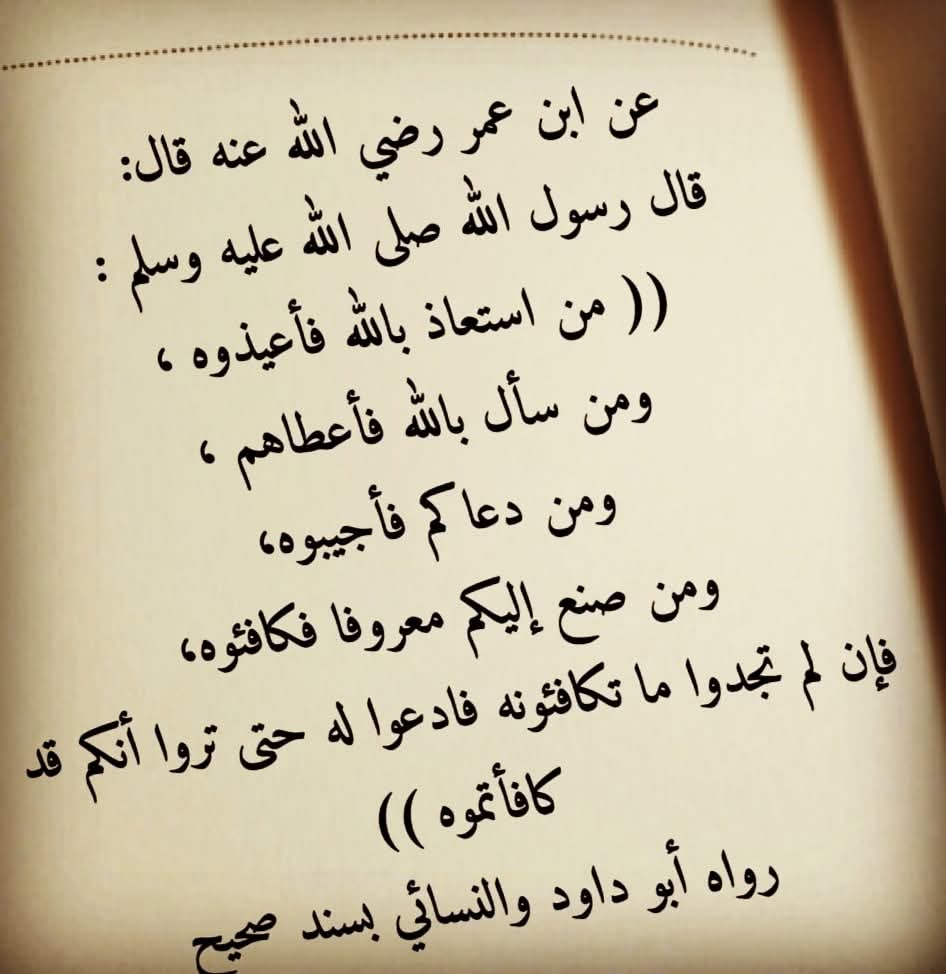 عن ابن عمر رضي الله عنه قال:
قال رسول الله صلى الله عليه وسلم :
(( من استعاذ بالله فأعيذوه ،
ومن سأل بالله فأعطاهم ،
ومن دعاكم فأجيبوه،
ومن صنع إليكم معروفا فكافئوه،
فإن لم تجدوا ما تكافئونه فادعوا له حتى تروا أنكم قد
كافأتموه ))
رواه أبو داود والنسائي بسند صحيح